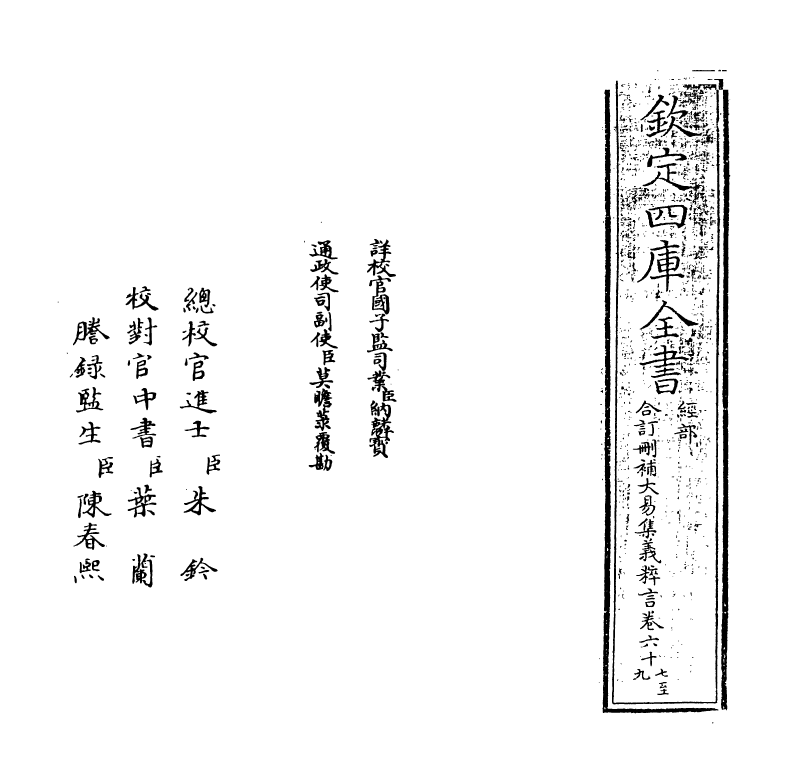 欽定四庫全書
經部
合訂刪補大易集義粹言卷六十七至九
詳校官國子監司業臣納麟寶
通政使司副使臣莫瞻菉覆勘
總校官進士臣朱鈐
校對官中書臣葉蘭
謄錄監生臣陳春熙